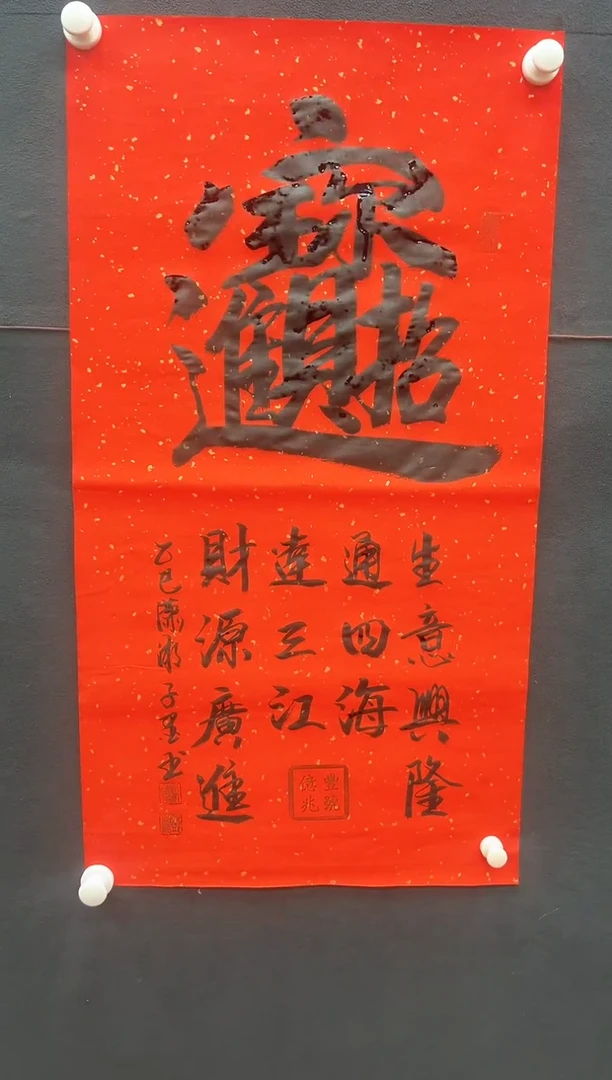 招財進寶
生意興隆
通四海
達三江
財源廣進
乙巳瀟湘子墨書
豐
億兆